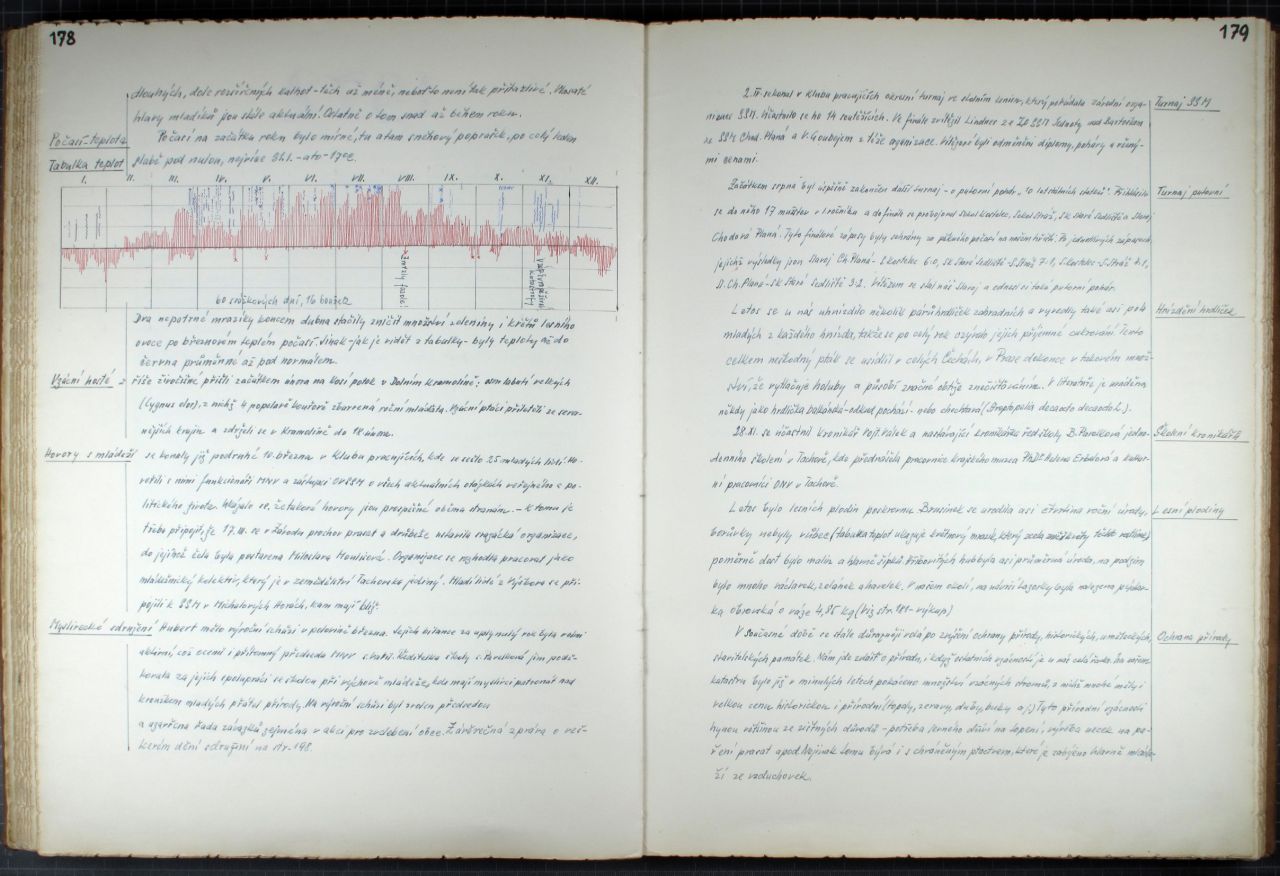 178
dlouhých, dole rozšířených kalhot - těch až méně, neboť to není tak přitažlivé. Vlasaté
hlavy mladíků jsou stále aktuální. Ostatně o tom snad až během roku.
Počasí - teplota
Počasí na začátku roku bylo mírné, tu a tam sněhový poprašek, po celý leden
Tabulka teplot
slabě pod nulou, nejvíce 31.1. - a to - 17°C.
I. II. III. IV. V. VI. VII. VIII. IX. X. XI. XII.
60 srážkových dní, 16 bouřek
Dva nepatrné mrazíky koncem dubna stačily zničit množství zeleniny i květů lesního
ovoce po březnovém teplém počasí. Jinak - jak je vidět z tabulky - byly teploty až do
června průměrné až pod normálem.
Vzácní hosté
z říše živočišné přišli začátkem února na Kosí potok v Dolním Kramolíně: osm labutí velkých
(Cygnus olor), z nichž 4 popelavě kouřově zbarvená roční mláďata. Vzácní ptáci přiletěli ze seve-
rnějších krajin a zdrželi se v Kramolíně do 18. února.
Hovory s mládeží
se konaly již podruhé 10. března v Klubu pracujících, kde se sešlo 25 mladých lidí. Ho-
vořili s nimi funkcionáři MNV a zástupci OV SSM o všech aktuálních otázkách veřejného a po-
litického života. Ukázalo se, že takové hovory jsou prospěšné oběma stranám. - K tomu je
třeba připojit, že 17. III. se v Závodu prchov prasat a drůbeže ustavila svazácká organizace,
do jejíhož čela byla postavena Miloslava Houšková. Organizace se rozhodla pracovat jako
mládežnický kolektiv, který je v zemědělství Tachovska jediný. Mladí lidé z Výškova se při-
pojili k SSM v Michalových Horách, kam mají blíž.
Myslivecké sdružení
Hubert mělo výroční schůzi v polovině března. Jejich bilance za uplynulý rok byla velmi
aktivní, což ocenil i přítomný předseda MNV s. Ředitelka školy s. Pavelková jim podě-
kovala za jejich spolupráci se školou při výchově mládeže, kde mají myslivci patronát nad
kroužkem mladých přátel přírody. Na výroční schůzi byl zvolen předsedou
a uzavřena řada závazků zejména v akci pro zvelebení obce. Závěrečná zpráva o veš-
kerém dění sdružení na str. 198.
179
2. IV. sehrál v Klubu pracujících okresní turnaj ve stolním tenise, který pořádala závodní orga-
Turnaj SSM
nizace SSM. Účastnilo se ho 14 soutěžících. Ve finále zvítězil Lindner ze ZO SSM Jednoty nad
ze SSM Chod. Planá a V. Goubojem z téže organizace. Vítězové byli odměněni diplomy, poháry a různý-
mi cenami.
Začátkem srpna byl úspěšně zakončen další turnaj - o putovní pohár Přihlásilo
Turnaj putovní
se do něho 17 mužstev v I. ročníku a do finále se probojoval Sokol Kostelec, Sokol Stráž, SK Staré Sedliště a Slavoj
Chodová Planá. Tyto finálové zápasy byly sehrány za pěkného počasí na našem hřišti. Po jednotlivých zápasech,
jejichž výsledky jsou Slavoj Ch. Planá - S. Kostelec 6:0, SK Staré Sedliště - S. Stráž 7:1, S. Kostelec - S. Stráž 4:1,
S. Ch. Planá - SK Staré Sedliště 3:2. Vítězem se stal náš Slavoj a odnesl si také putovní pohár.
Letos se u nás uhnízdilo několik párů hrdliček zahradních a vyvedly také asi po 4
Hnízdění hrdliček
mladých z každého hnízda, takže se po celý rok ozývalo jejich příjemné cukrování. Tento
celkem neškodný pták se usídlil v celých Čechách, v Praze dokonce v takovém množ-
ství, že vytlačuje holuby a působí značné obtíže znečišťováním. V literatuře je uváděna
někdy jako hrdlička balkánská - odkud pochází - nebo chechtavá (Streptopelia decaocto decaocto L.).
28. XI. se účastnil kronikář Vojt. Válek a nastávající kronikářka řed. školy B. Pavelková jedno-
Školení kronikářů
denního školení v Tachově, kde přednášela pracovnice krajského muzea PhDr. Helena Erbdová a kultur-
ní pracovníci ONV v Tachově.
Letos bylo lesních plodin poskrovnu. Brusinek se urodila asi čtvrtina roční úrody,
Lesní plodiny
borůvky nebyly vůbec (tabulka teplot ukazuje květnový mrazík, který zcela zničil květy těchto rostlin),
poměrně dost bylo malin a hlavně šípků. Hřibovitých hub byla asi průměrná úroda, na podzim
bylo mnoho václavek, zelánek a havelek. V našem okolí, na návrší Lazurky byla nalezena pýchav-
ka obrovská o váze 4,85 kg (viz str. 181 - výkup)
V současné době se stále důrazněji volá po zvýšení ochrany přírody, historických, uměleckých,
Ochrana přírody
stavitelských památek. Nám jde zvlášť o přírodu, i když ostatních vzácností je u nás celá řada. Na našem
katastru bylo již v minulých letech pokáceno množství vzácných stromů, z nichž mnohé měly i
velkou cenu historickou i přírodní (topoly, zeravy, duby, buky a j.) Tyto přírodní vzácnosti
hynou většinou ze zištných důvodů - potřeba levného dříví na topení, výroba necek na pa-
ření prasat apod. Nejinak tomu bývá i s chráněným ptactvem, které je zabíjeno hlavně mláde-
ží ze vzduchovek.